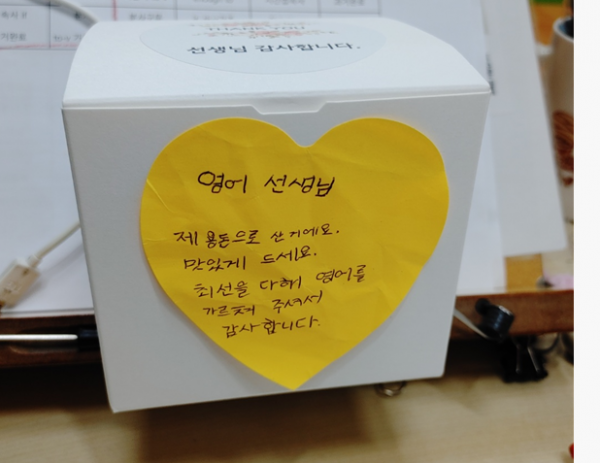 THANK YOU
선생님 감사합니다.
영어 선생님
제 용돈으로 산 거에요.
맛있게 드세요.
최선을 다해 영어를
가르쳐 주셔서
감사합니다.